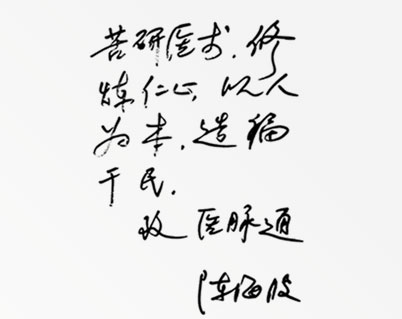 苦研医术,修
炼仁心,以人
为本,造福
于民.
致 医脉通
陈海波